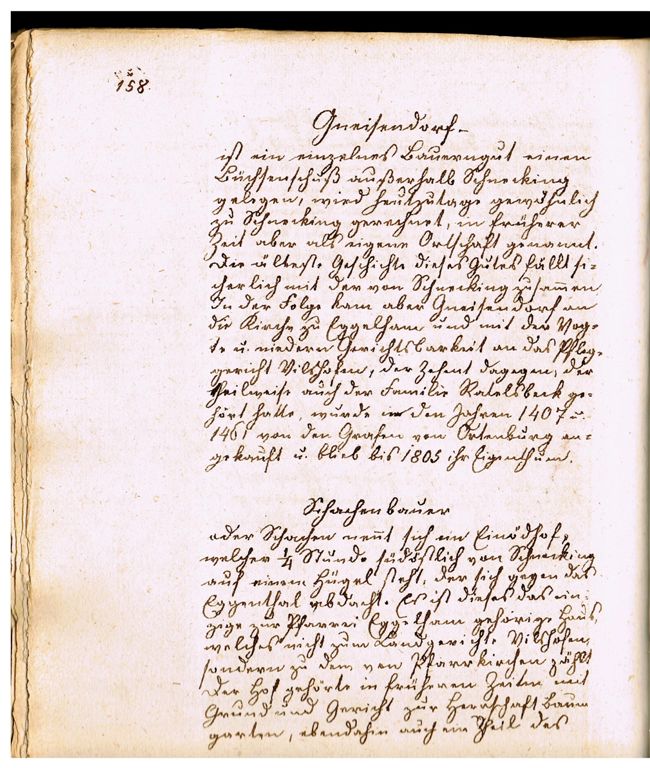 158.
Gneisendorf
ist ein einzelnes Bauerngut einen
Büchsenschuß außerhalb Schnecking
gelegen, wird heutzutage gewöhnlich
zu Schnecking gerechnet, in früherer
Zeit aber als eigene Ortschaft genannt.
Die älteste Geschichte dieses Gutes fällt si=
cherlich mit der von Schnecking zusammen
In der Folge kam aber Gneisendorf an
die Kirche zu Eggelham und mit der Vog=
te u. niedern Gerichtsbarkeit an das Pfleg=
gericht Vilshofen, der Zehent dagegen, der
theilweise auch der Familie Ratelsbeck ge=
hört hatte, wurde in den Jahren 1407 u.
1461 von den Grafen von Ortenburg an=
gekauft u. blieb bis 1805 ihr Eigenthum.
Schachenbauer
oder Schachen nennt sich ein Einödhof,
welcher 1/4 Stunde südöstlich von Schnecking
auf einem Hügel steht, der sich gegen das
Eggenthal abdacht. Es ist dieses das ein=
zige zur Pfarrei Eggelham gehörige Haus,
welches nicht zum Landgerichte Vilshofen,
sondern zu dem von Pfarrkirchen zählt
Der Hof gehörte in früheren Zeiten mit
Grund und Gericht zur Herrschaft Baum
garten, ebendahin auch ein Theil des